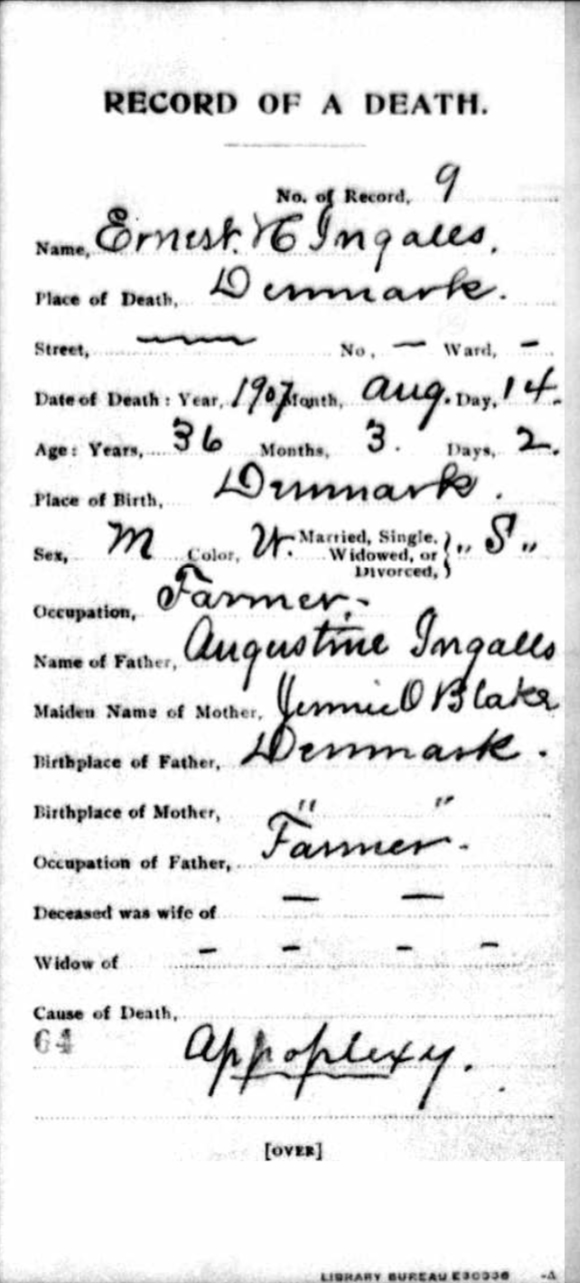 RECORD OF A DEATH.
No. of Record, 9
Name, Ernest. H Ingalls.
Place of Death, Denmark.
Street, — No, — Ward, -
Date of Death: Year, 1907 Month, Aug. Day, 14.
Age: Years, 36 Months, 3. Days, 2.
Place of Birth, Denmark.
Sex, M Color, W. Married, Single, Widowed, or Divorced, } „ S „
Occupation, Farmer.-
Name of Father, Augustine Ingalls
Maiden Name of Mother, Jennie O Blake
Birthplace of Father, Denmark.
Birthplace of Mother, " "
Occupation of Father, Farmer-
Deceased was wife of — —
Widow of - - - -
Cause of Death,
64 Appoplexy.
[OVER]
LIBRARY BUREAU